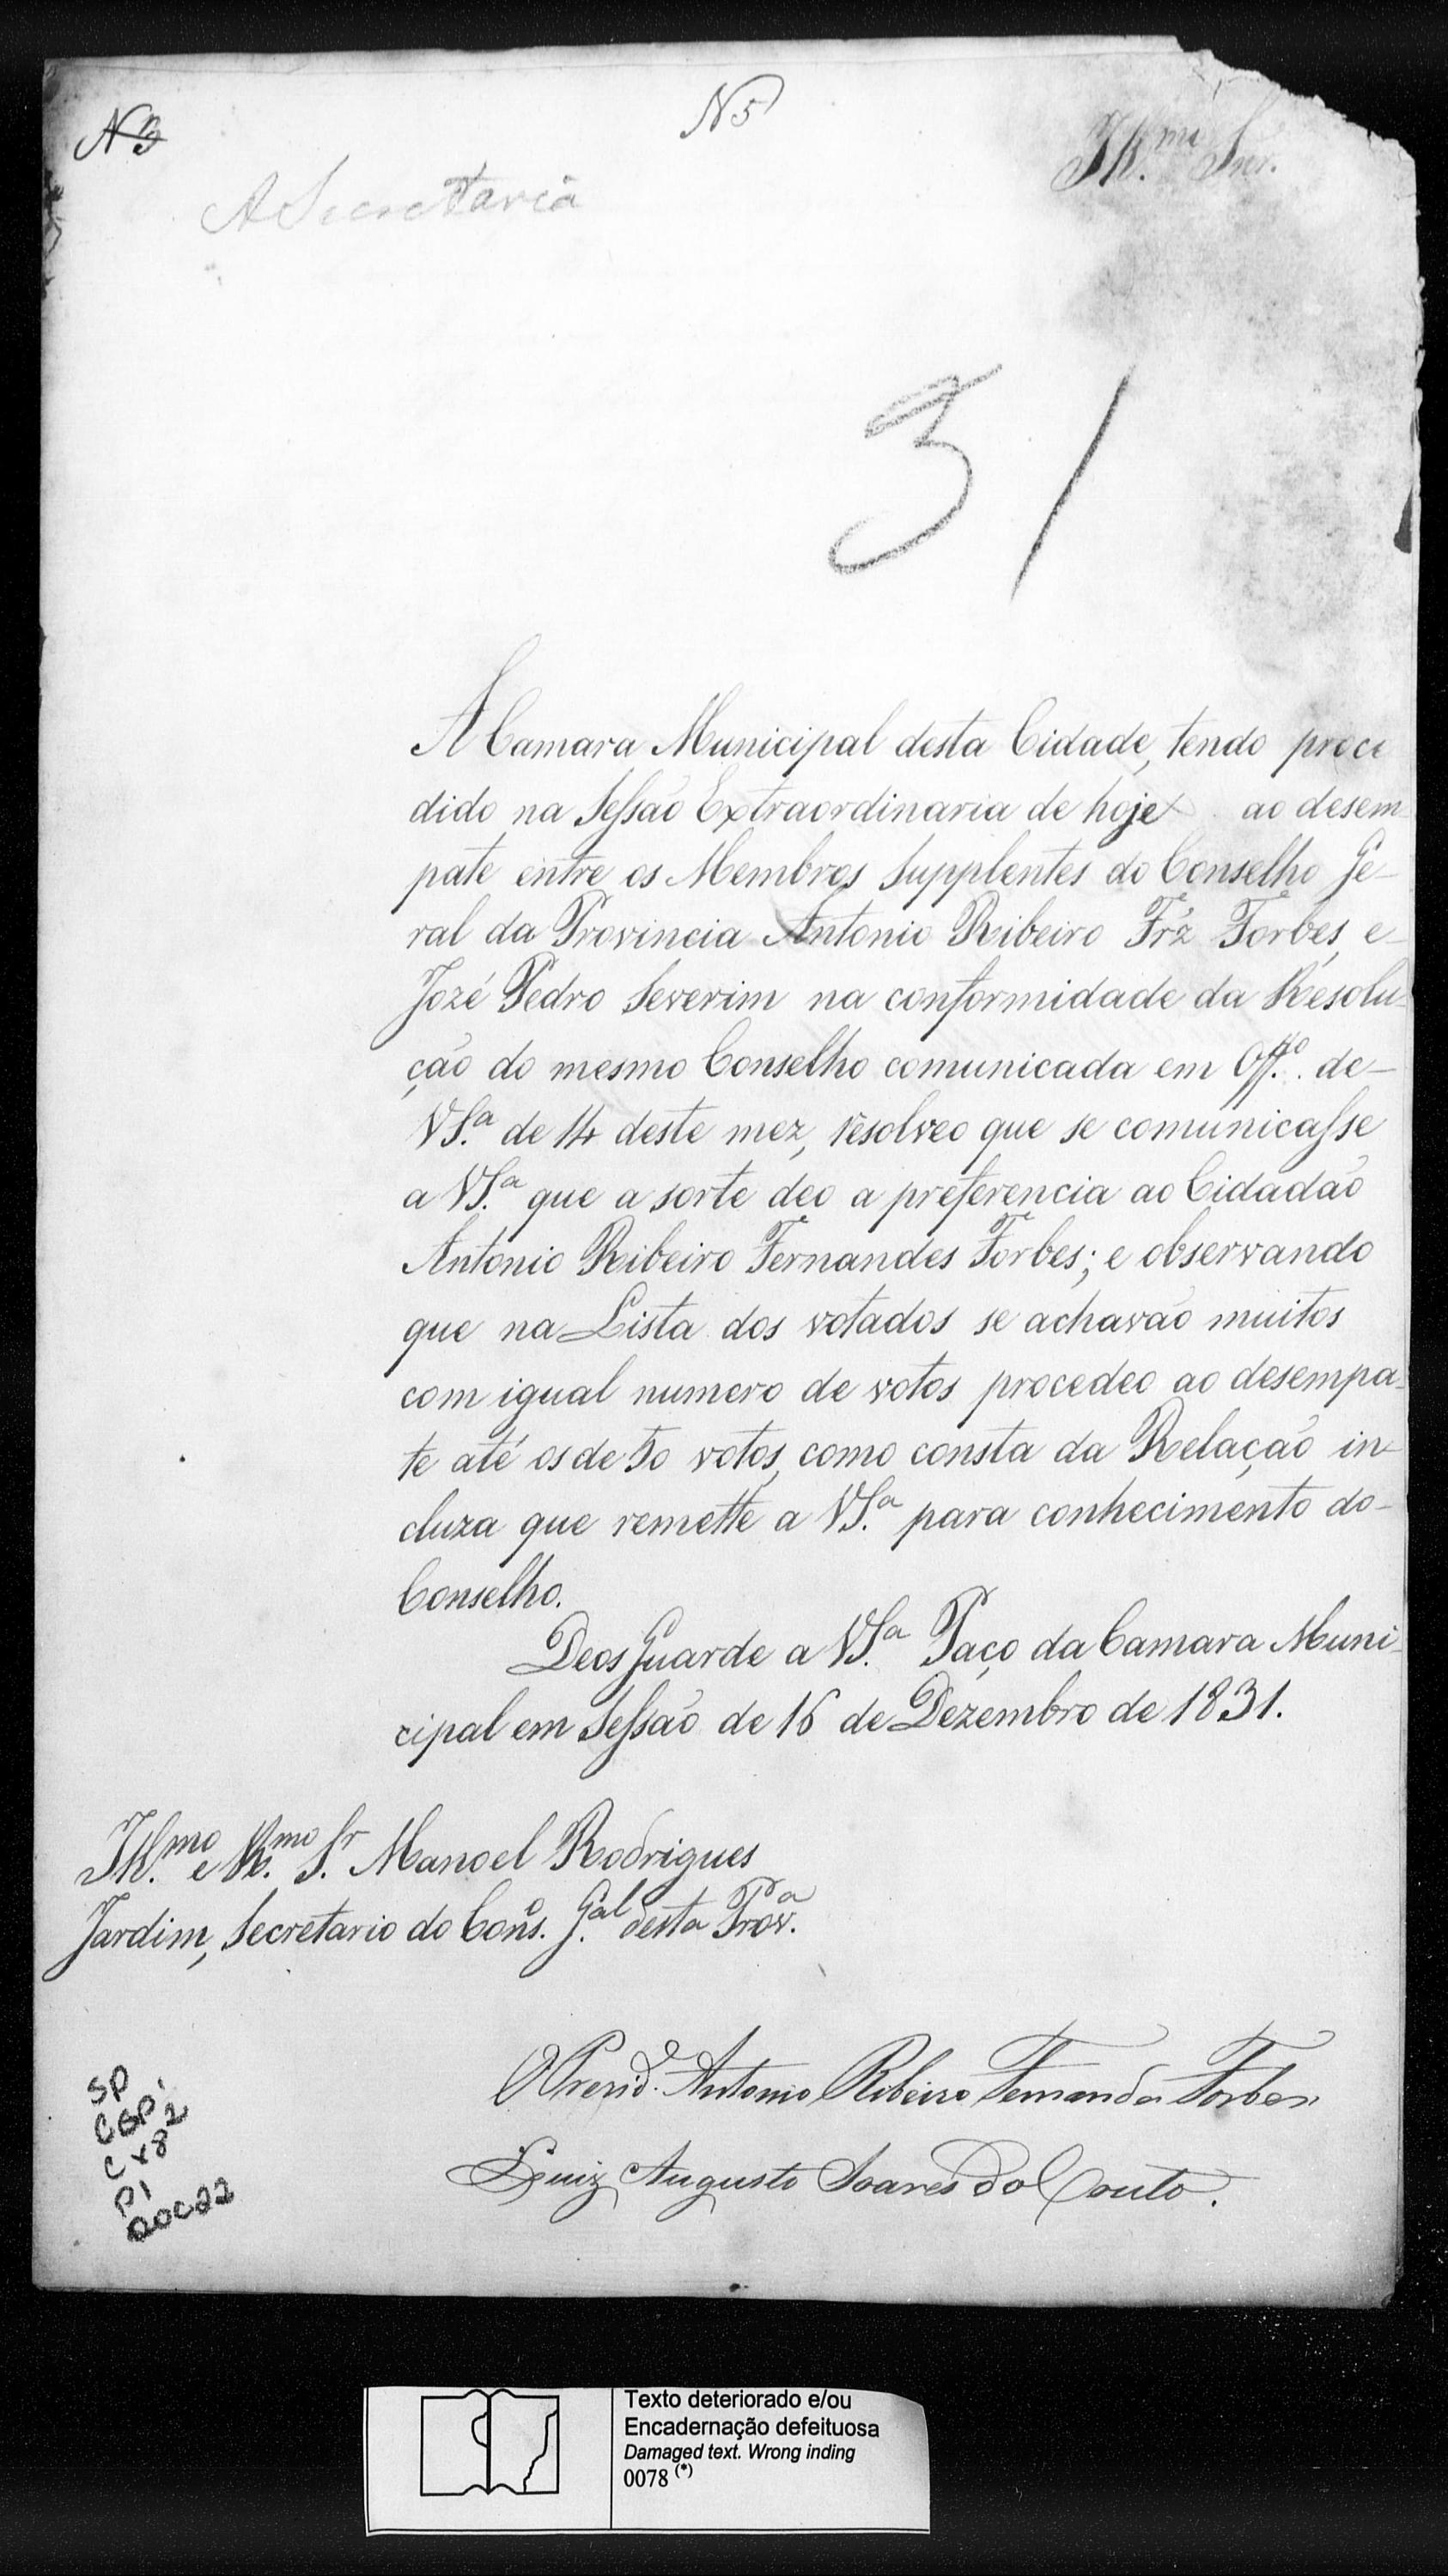 N 3
N 5
Ill.mo Snr.
A Secretaria
31
A Camara Municipal desta Cidade, tendo proce
dido na Sessão Extraordinaria de hoje ao desem
pate entre os Membros Supplentes do Conselho Ge-
ral da Provincia Antonio Ribeiro Frz Forbes, e
Jozé Pedro Severim na conformidade da Resolu-
ção do mesmo Conselho comunicada em Off.o de
VS.a de 14 deste mez, resolveo que se comunicasse
a VS.a que a sorte deo a preferencia ao Cidadão
Antonio Ribeiro Fernandes Forbes; e observando
que na Lista dos votados se achavão muitos
com igual numero de votos procedeo ao desempa-
te até os de 50 votos, como consta da Relação in-
cluza que remette a VS.a para conhecimento do
Conselho.
Deos Guarde a VS.a Paço da Camara Muni-
cipal em Sessão de 16 de Dezembro de 1831.
Ill.mo e R.mo S.r Manoel Rodrigues
Jardim, Secretario do Cons.o G.al desta Prov.a
O Prezid.e Antonio Ribeiro Fernandes Forbes
Luiz Augusto Soares do Couto.
SP
CGP1
Cx82
P1
DOC22
Texto deteriorado e/ou
Encadernação defeituosa
Damaged text. Wrong inding
0078 (*)